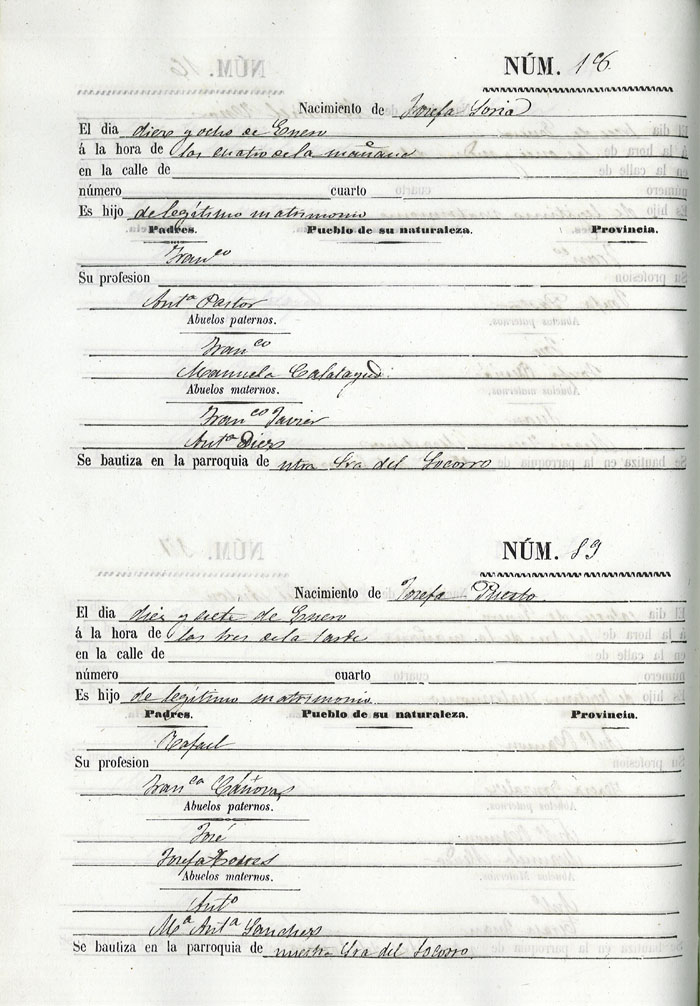 NÚM. 18
Nacimiento de Josefa Soria
El dia diez y ocho de Enero
á la hora de las cuatro de la mañana
en la calle de
número cuarto
Es hijo de legítimo matrimonio
Padres. Pueblo de su naturaleza. Provincia.
Fran.co
Su profesion
Ant.a Pastor
Abuelos paternos.
Fran.co
Manuela Calatayud.
Abuelos maternos.
Fran.co Javier
Ant.a Diez
Se bautiza en la parroquia de ntra Sra del Socorro
NÚM. 89
Nacimiento de Josefa
El dia diez y siete de Enero
á la hora de las tres de la tarde
en la calle de
número cuarto
Es hijo de legitimo matrimonio
Padres. Pueblo de su naturaleza. Provincia.
Rafael
Su profesion
Fran.ca Cánovas
Abuelos paternos.
José
Josefa
Abuelos maternos.
Ant.o
M.a Ant.a Sanchez
Se bautiza en la parroquia de nuestra Sra del Socorro